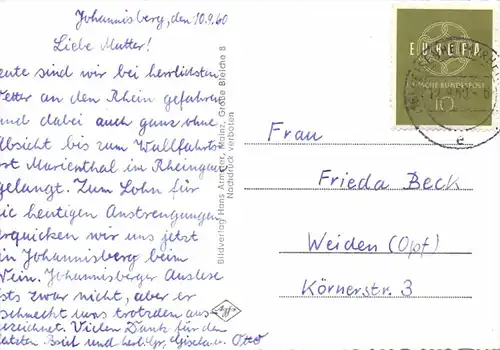 Johannisberg, den 10.9.60
Liebe Mutter!
eute sind wir bei herrlichsten
etter an den Rhein gefahren
und dabei auch ganz ohne
bsicht bis zum Wallfahrts-
ort Marienthal im Rheingau
gelangt. Zum Lohn für
die heutigen Anstrengungen
erquicken wir uns jetzt
in Johannisberg beim
Wein. Johannisberger Auslese
ists zwar nicht, aber er
schmeckt uns trotzdem aus-
gezeichnet. Vielen Dank für den
letzten Brief und herzl. Gr. Gisela u. Otto
Bildverlag Hans Armster, Mainz, Große Bleiche 8
Nachdruck verboten
Agfa
EUROPA
DEUTSCHE BUNDESPOST
10
Frau
Frieda Beck
Weiden (Opf)
Körnerstr. 3